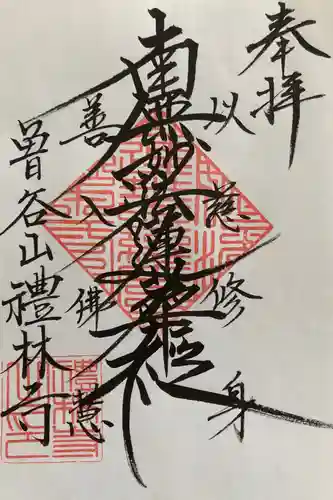 奉拝
以慈修身
南無妙法蓮華経
善
佛
曽谷山禮林寺